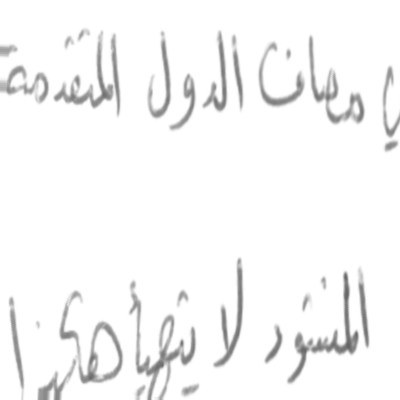 ي مصاف الدول المتقدمة
المنشود لا يتهيأ هكذا